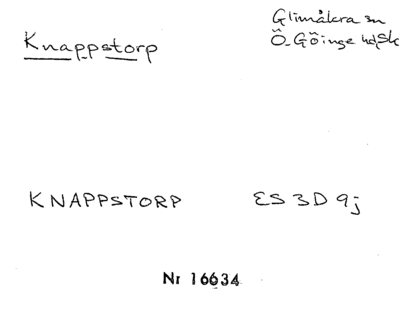 Knappstorp
Glimåkra sn
Ö. Göinge hd, Sk
KNAPPSTORP ES 3D 9j
Nr 16634